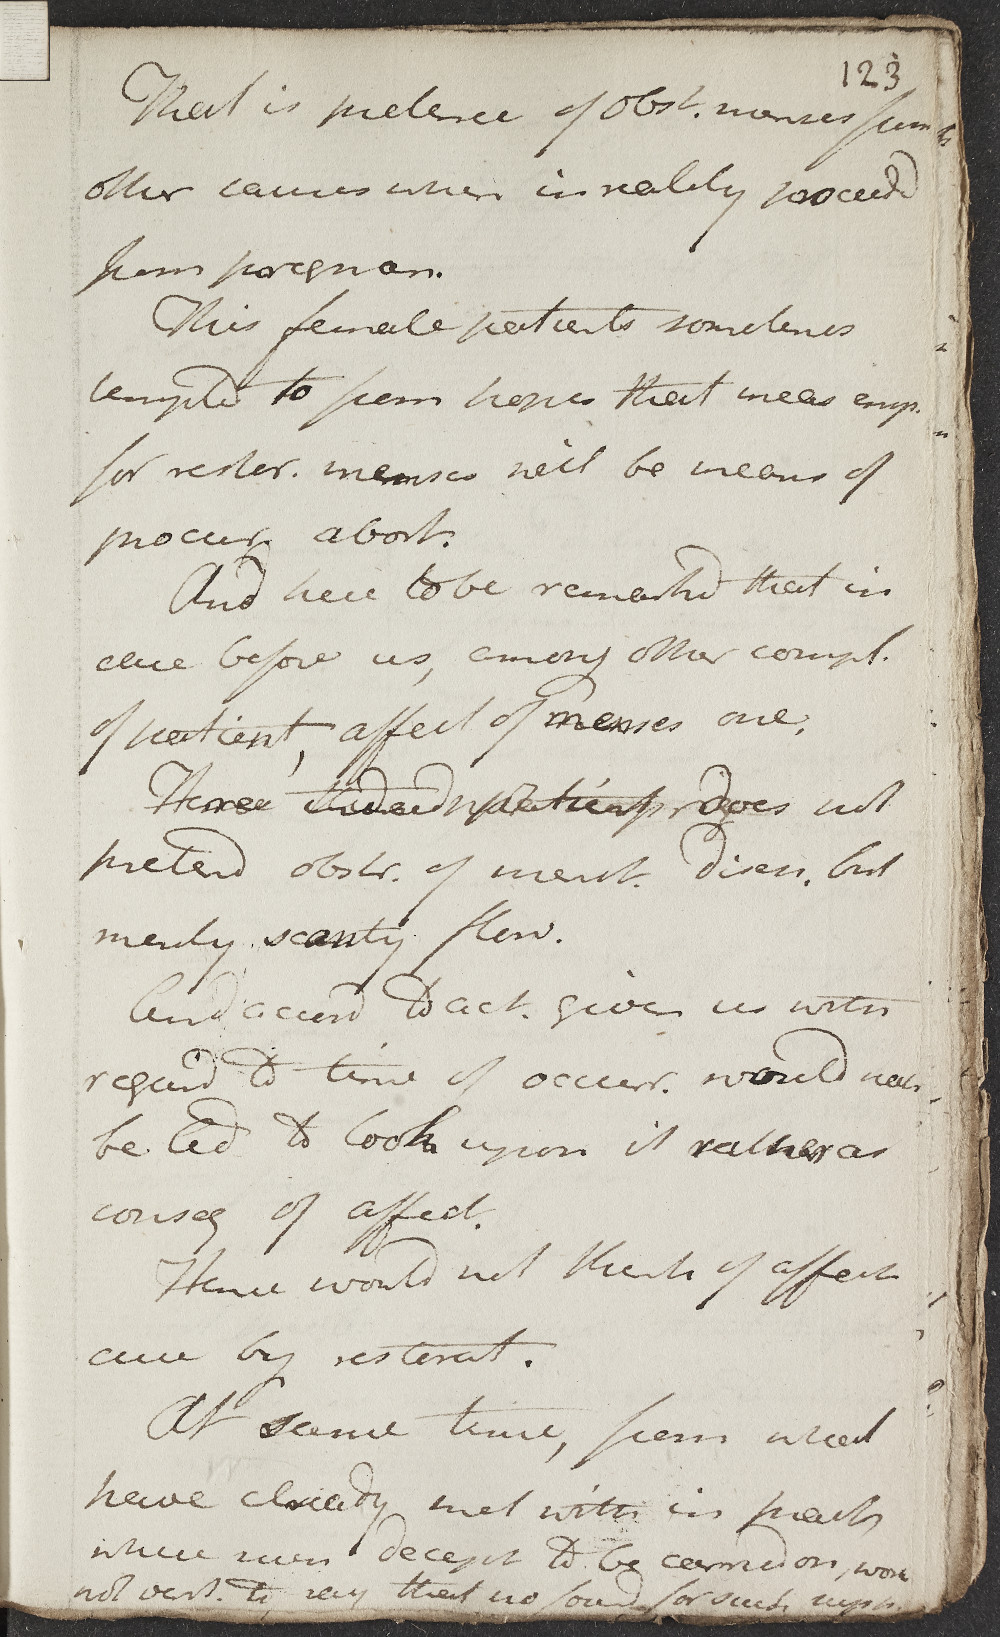 123
That is pretence of obst. menses from
other causes when in reality proceed
from pregnan.
This female patients sometimes
tempted to from hopes that meas emp.
for restor. menses will be means of
procur. abort.
And here to be remarked that in
case before us, among other compl.
of patient, affect of menses one,
Here indeed patient does not
pretend obstr. of menst. disch. but
merely scanty flow.
And accord to act. given us with
regard to time of occurr. would
be led to look upon it rather as
conseq of affect.
Hence would not think of affect
cure by restorat.
At same time, from what
have already met with in pract
where seen decept to be carried on, wou
not vent. to say that no found. for such